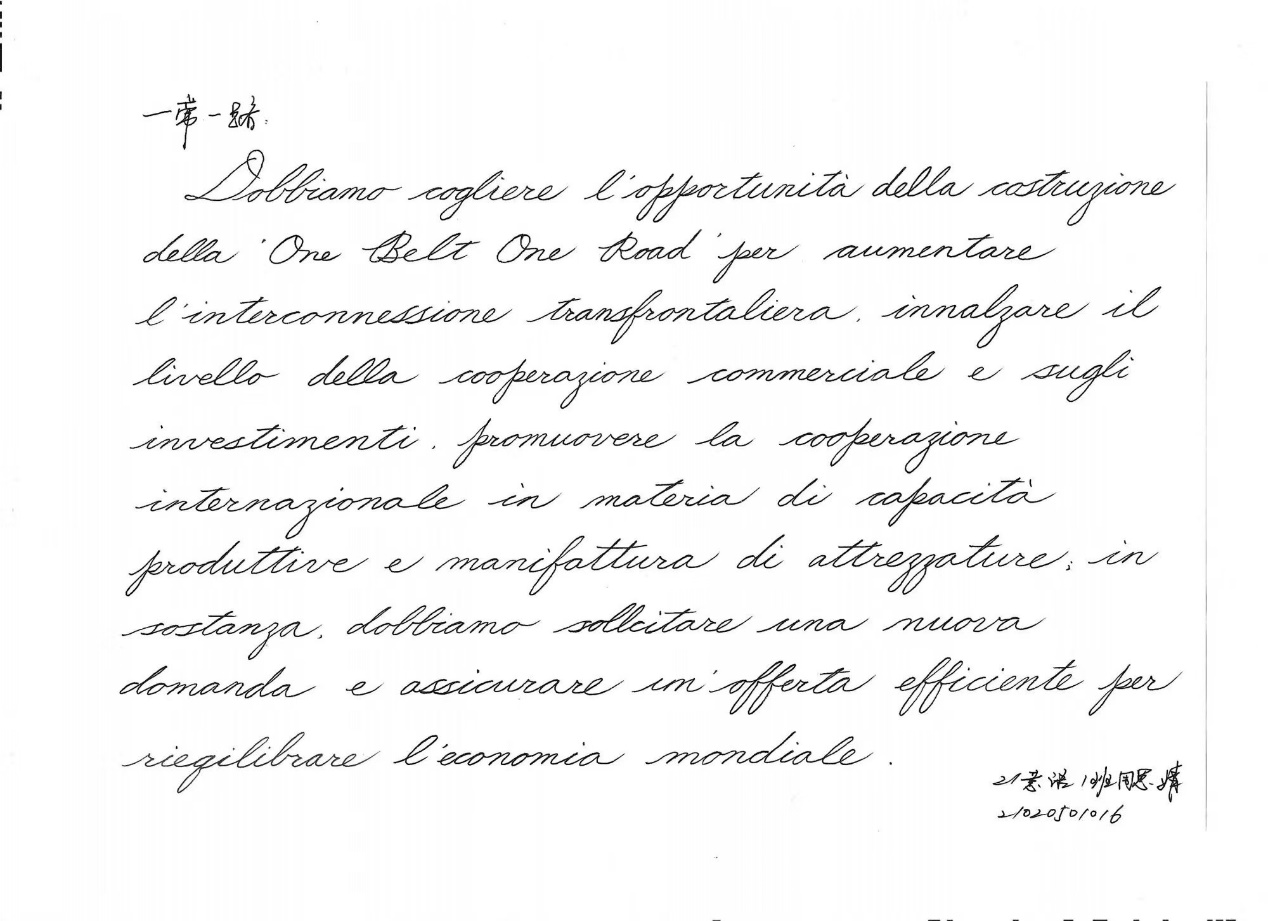 一带一路:
Dobbiamo cogliere l'opportunità della costruzione
della 'One Belt One Road' per aumentare
l'interconnessione transfrontaliera, innalzare il
livello della cooperazione commerciale e sugli
investimenti, promuovere la cooperazione
internazionale in materia di capacità
produttive e manifattura di attrezzature; in
sostanza, dobbiamo sollcitare una nuova
domanda e assicurare un'offerta efficiente per
rieqilibrare l'economia mondiale.
21意语1班周思婧
21020501016